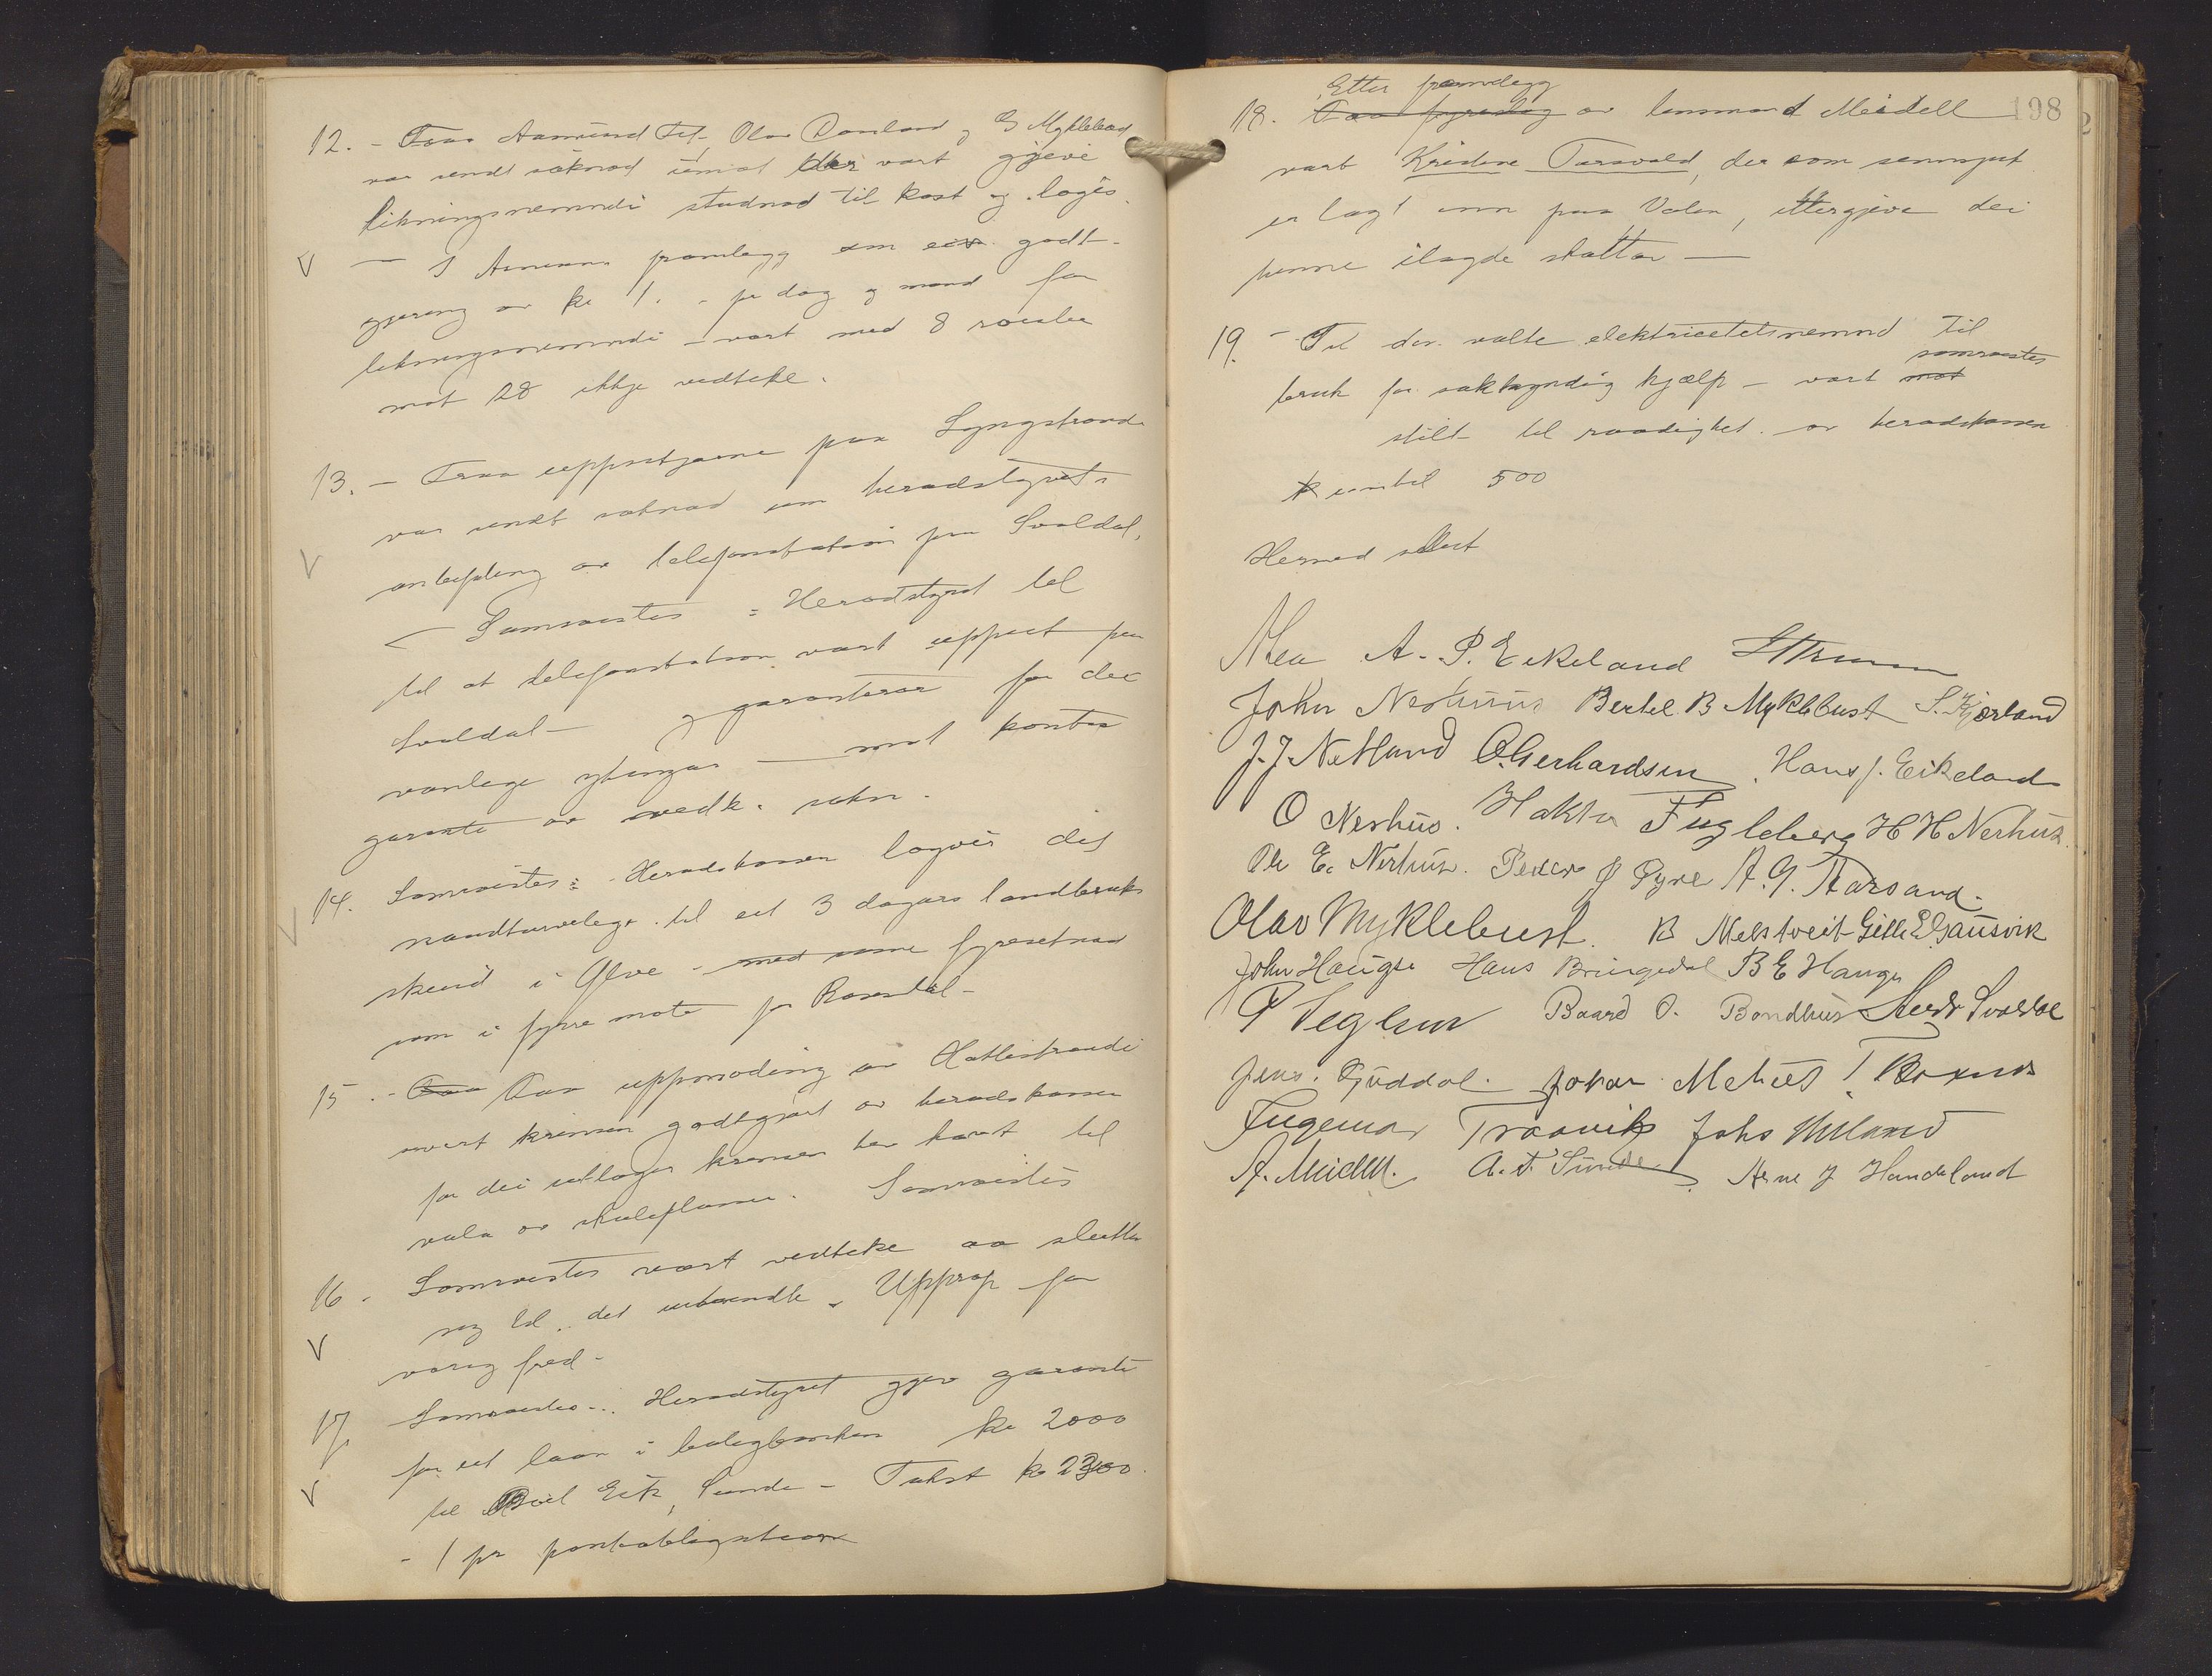 12. - Fraa Aamund Tel, Olav Øvrland og G Myklebust
var sendt søknad um at der vart gjeve
likningsnemndi studnad til kost og logis.
- framlegg om ein godt-
gjering av kr 1. - pr dag og mand for
likningsnemndi - vart med 8 røuster
mot 28 ikkje vedteke.
13. - Fraa uppsitjarne paa Lyngstrandi
var sendt søknad um heradstyrets
anbefaling av telefonstation paa Svaldal,
- Samrøistes = Heradstyret
til at telefonstation vart uppsett paa
Svaldal - og garanterar for dei
vanlege ytingar - mot kontra
garanti av vedk. sokn.
14. Samrøistes: Heradskassen logvis det
naudturvelege til eit 3 dagars landbruks
skeid i Ølve - med same fyresetnad
som i fyrre møte for Rosendal -
15. - Fraa Paa uppmoding av Hatlestrandi
vert krinsen godtgjort av heradskassen
for dei utlogor krinsen har havt til
av skuleplanen. Samrøistes
16. Samrøistes vart vedteke aa slutta
seg til det utsendte Upprop for
varig fred -
17. Samrøistes: Heradstyret gjev garanti
for eit laan i bustigbanken kr 2000
til Eik, Sunde - Takst kr 2300.
- 1 pr pantobligasjon
198
Etter framlegg
18. Paa fyrelag av lensmand Meidell
vart Kristine Tarevald, der som sinnsjuk
er lagt inn paa Valen, ettergjeve dei
henne ilagde skattar -
19. - Til den valte elektricitetsnemnd til
samrøistes
bruk for sakkyndig hjælp - vart mot
stilt til raadighet av heradskassen
kr inntil 500
Hermed slutt
A. P. Eikeland
John Nerhuus Bertel B Myklebust S. Kjærland
J. J. Netland O. Gerhardsen Hans J. Eikeland
O Nerhus. Hakon Fugleberg H H Nerhus.
Ole E. Nerhus. Peder Ø Øyre A. G. Aarsand.
Olav Myklebust. B Melstveit Gitle E Gausvik
John Hauge Hans Bringedal B E Hauge
P Seglem Baard O. Bondhus Svaldal
Jens Guddal. Johan Mehus
Ingemar Traavik Johs Miland
A. Meidell. A. T. Sunde Arne J Handeland